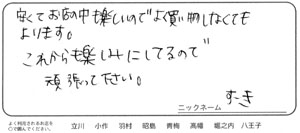 安くてお店の中も楽しいのでよく買い物しなくても
よります。
これからも楽しみにしてるので
頑張って下さい。
ニックネーム すーき
よく利用されるお店を
○で囲んでください。 立川 小作 羽村 昭島 青梅 高幡 堀之内 八王子